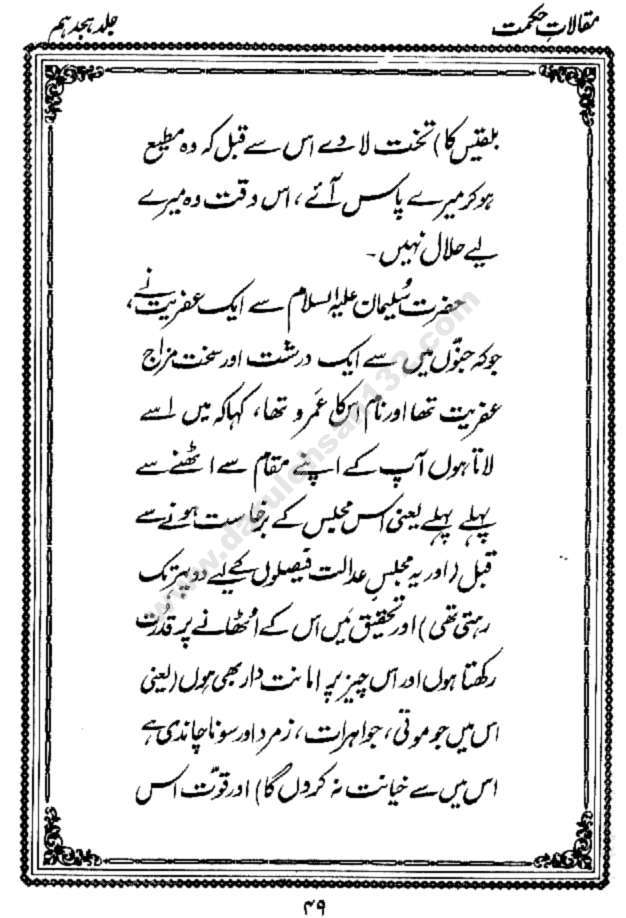 مقالاتِ حکمت
جلد ہجدہم
بلقیس کا) تخت لا دے اس سے قبل کہ وہ مطیع
ہو کر میرے پاس آئے، اس وقت وہ میرے
لیے حلال نہیں۔
حضرت سُلیمان علیہ السلام سے ایک عفریت نے،
جو کہ جنّوں میں سے ایک درشت اور سخت مزاج
عفریت تھا اور نام اس کا عمرو تھا، کہا کہ میں اسے
لاتا ہوں آپ کے اپنے مقام سے اٹھنے سے
پہلے پہلے یعنی اس مجلس کے برخاست ہونے سے
قبل (اور یہ مجلسِ عدالت فیصلوں کے لیے دوپہر تک
رہتی تھی) اور تحقیق مَیں اس کے اُٹھانے پر قُدرت
رکھتا ہوں اور اس چیز پر امانت دار بھی ہوں (یعنی
اس میں جو موتی، جواہرات، زمرد اور سونا چاندی ہے
اس میں سے خیانت نہ کروں گا) اور قوّت اس
۴۹
www.dasulehsar132.com